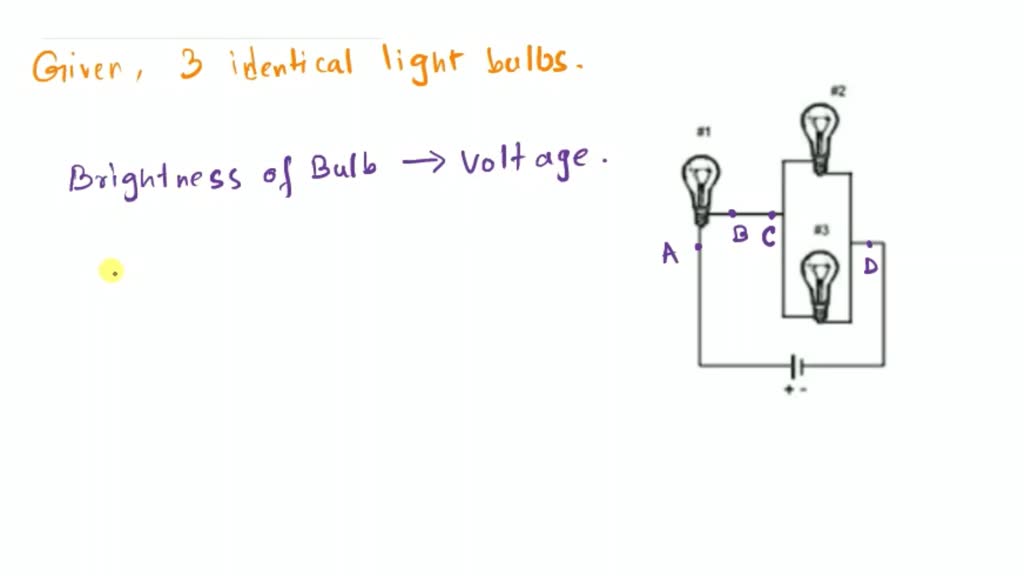 Given, 3 identical light bulbs.
Brightness of Bulb → Voltage.
#2
#1
#3
B C
A
D
+ -